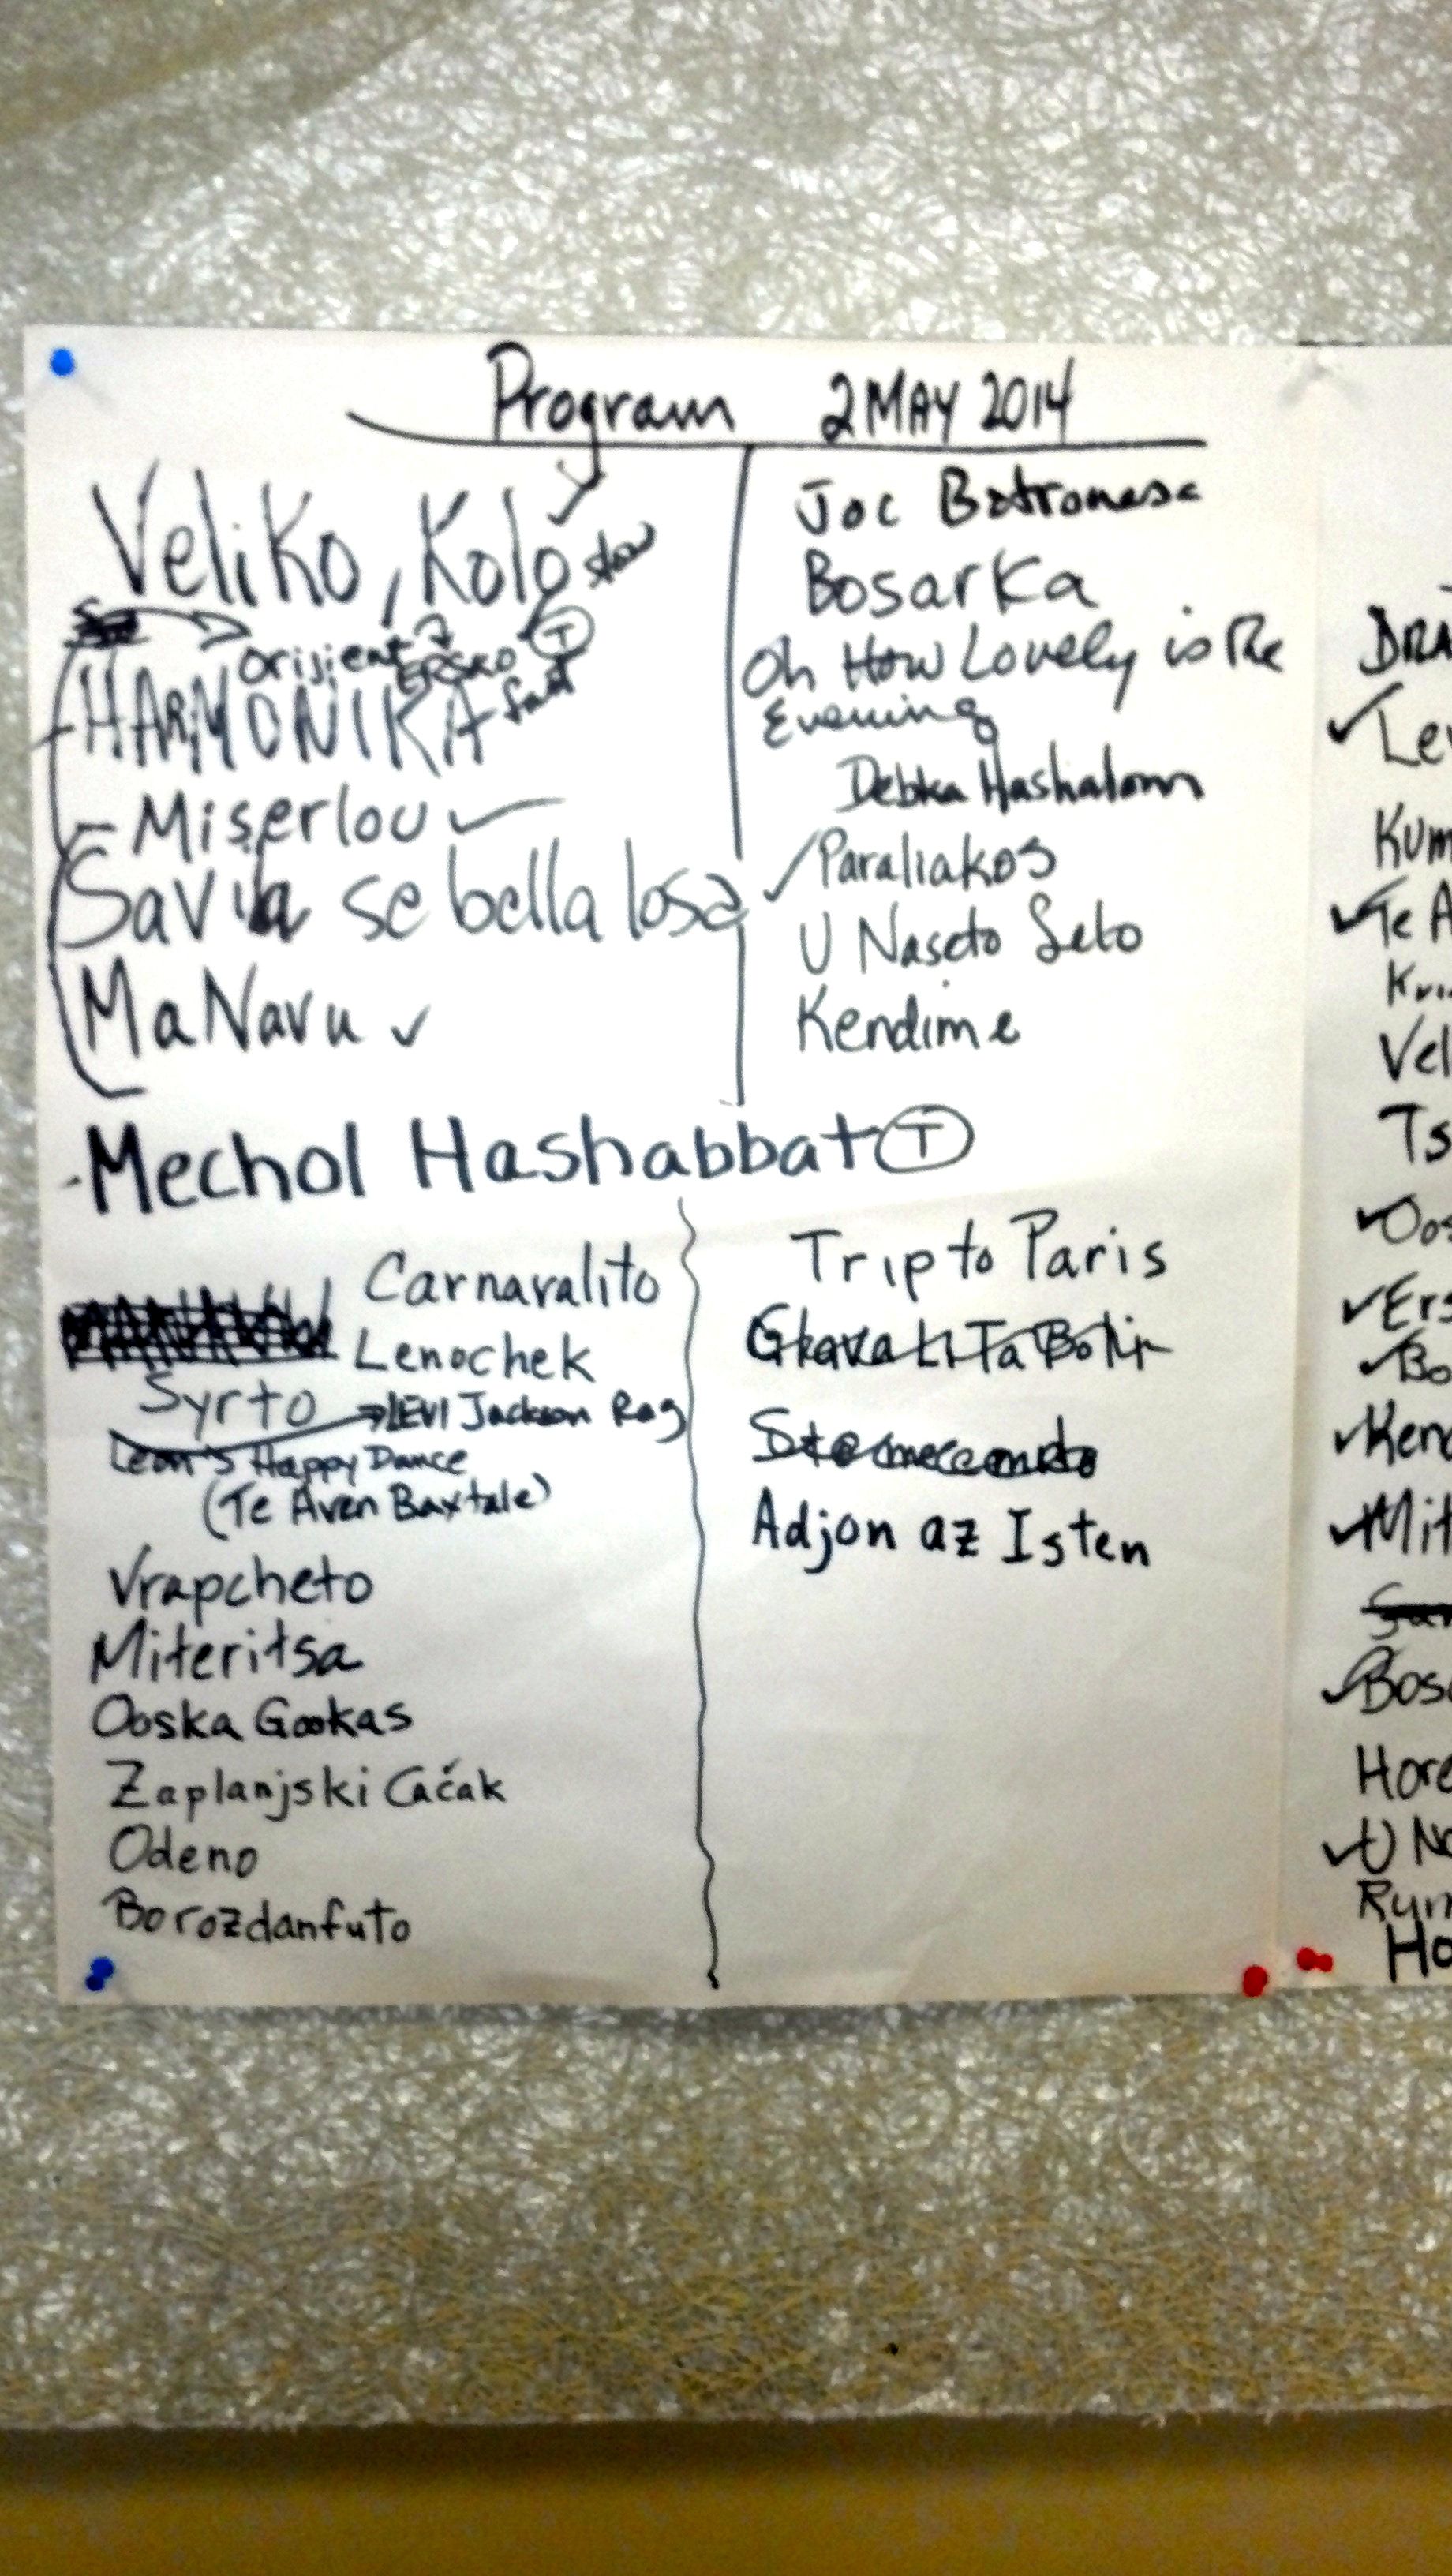 Program 2 MAY 2014
Veliko, Kolo
slow
Orijent
ERSKO T
HARMONIKA fast
- Miserlou ✓
Savila se bella losa
Ma Navu ✓
Joc Batronesc
Bosarka
Oh How Lovely is the
Evening
Debka Hashalom
✓ Paraliakos
U Naseto Selo
Kendime
- Mechol Hashabbat T
Carnavalito
Lenochek
Syrto → LEVI Jackson Rag
Leon's Happy Dance
(Te Aven Baxtale)
Vrapcheto
Miteritsa
Ooska Gookas
Zaplanjski Cačak
Odeno
Borozdanfuto
Trip to Paris
Glava Li Ta Boli
Adjon az Isten
✓ Te A
Vel
Ts
✓ Oos
✓ Ers
✓ Bo
✓ Kend
✓ Mit
✓ Bosa
Hore
✓ U Na
Ho